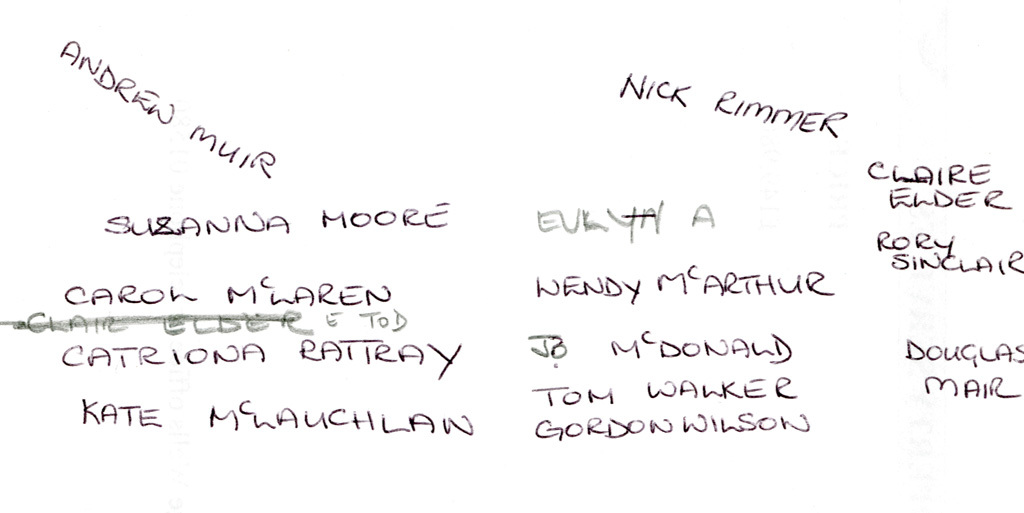 ANDREW MUIR
NICK RIMMER
CLAIRE
ELDER
SUZANNA MOORE
A
RORY
SINCLAIR
CAROL McLAREN
WENDY McARTHUR
CLAIR ELDER E TOD
CATRIONA RATTRAY
JO McDONALD
DOUGLAS
MAIR
TOM WALKER
KATE McLAUCHLAN
GORDON WILSON